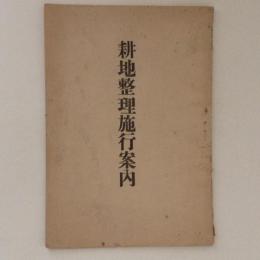 耕地整理施行案内